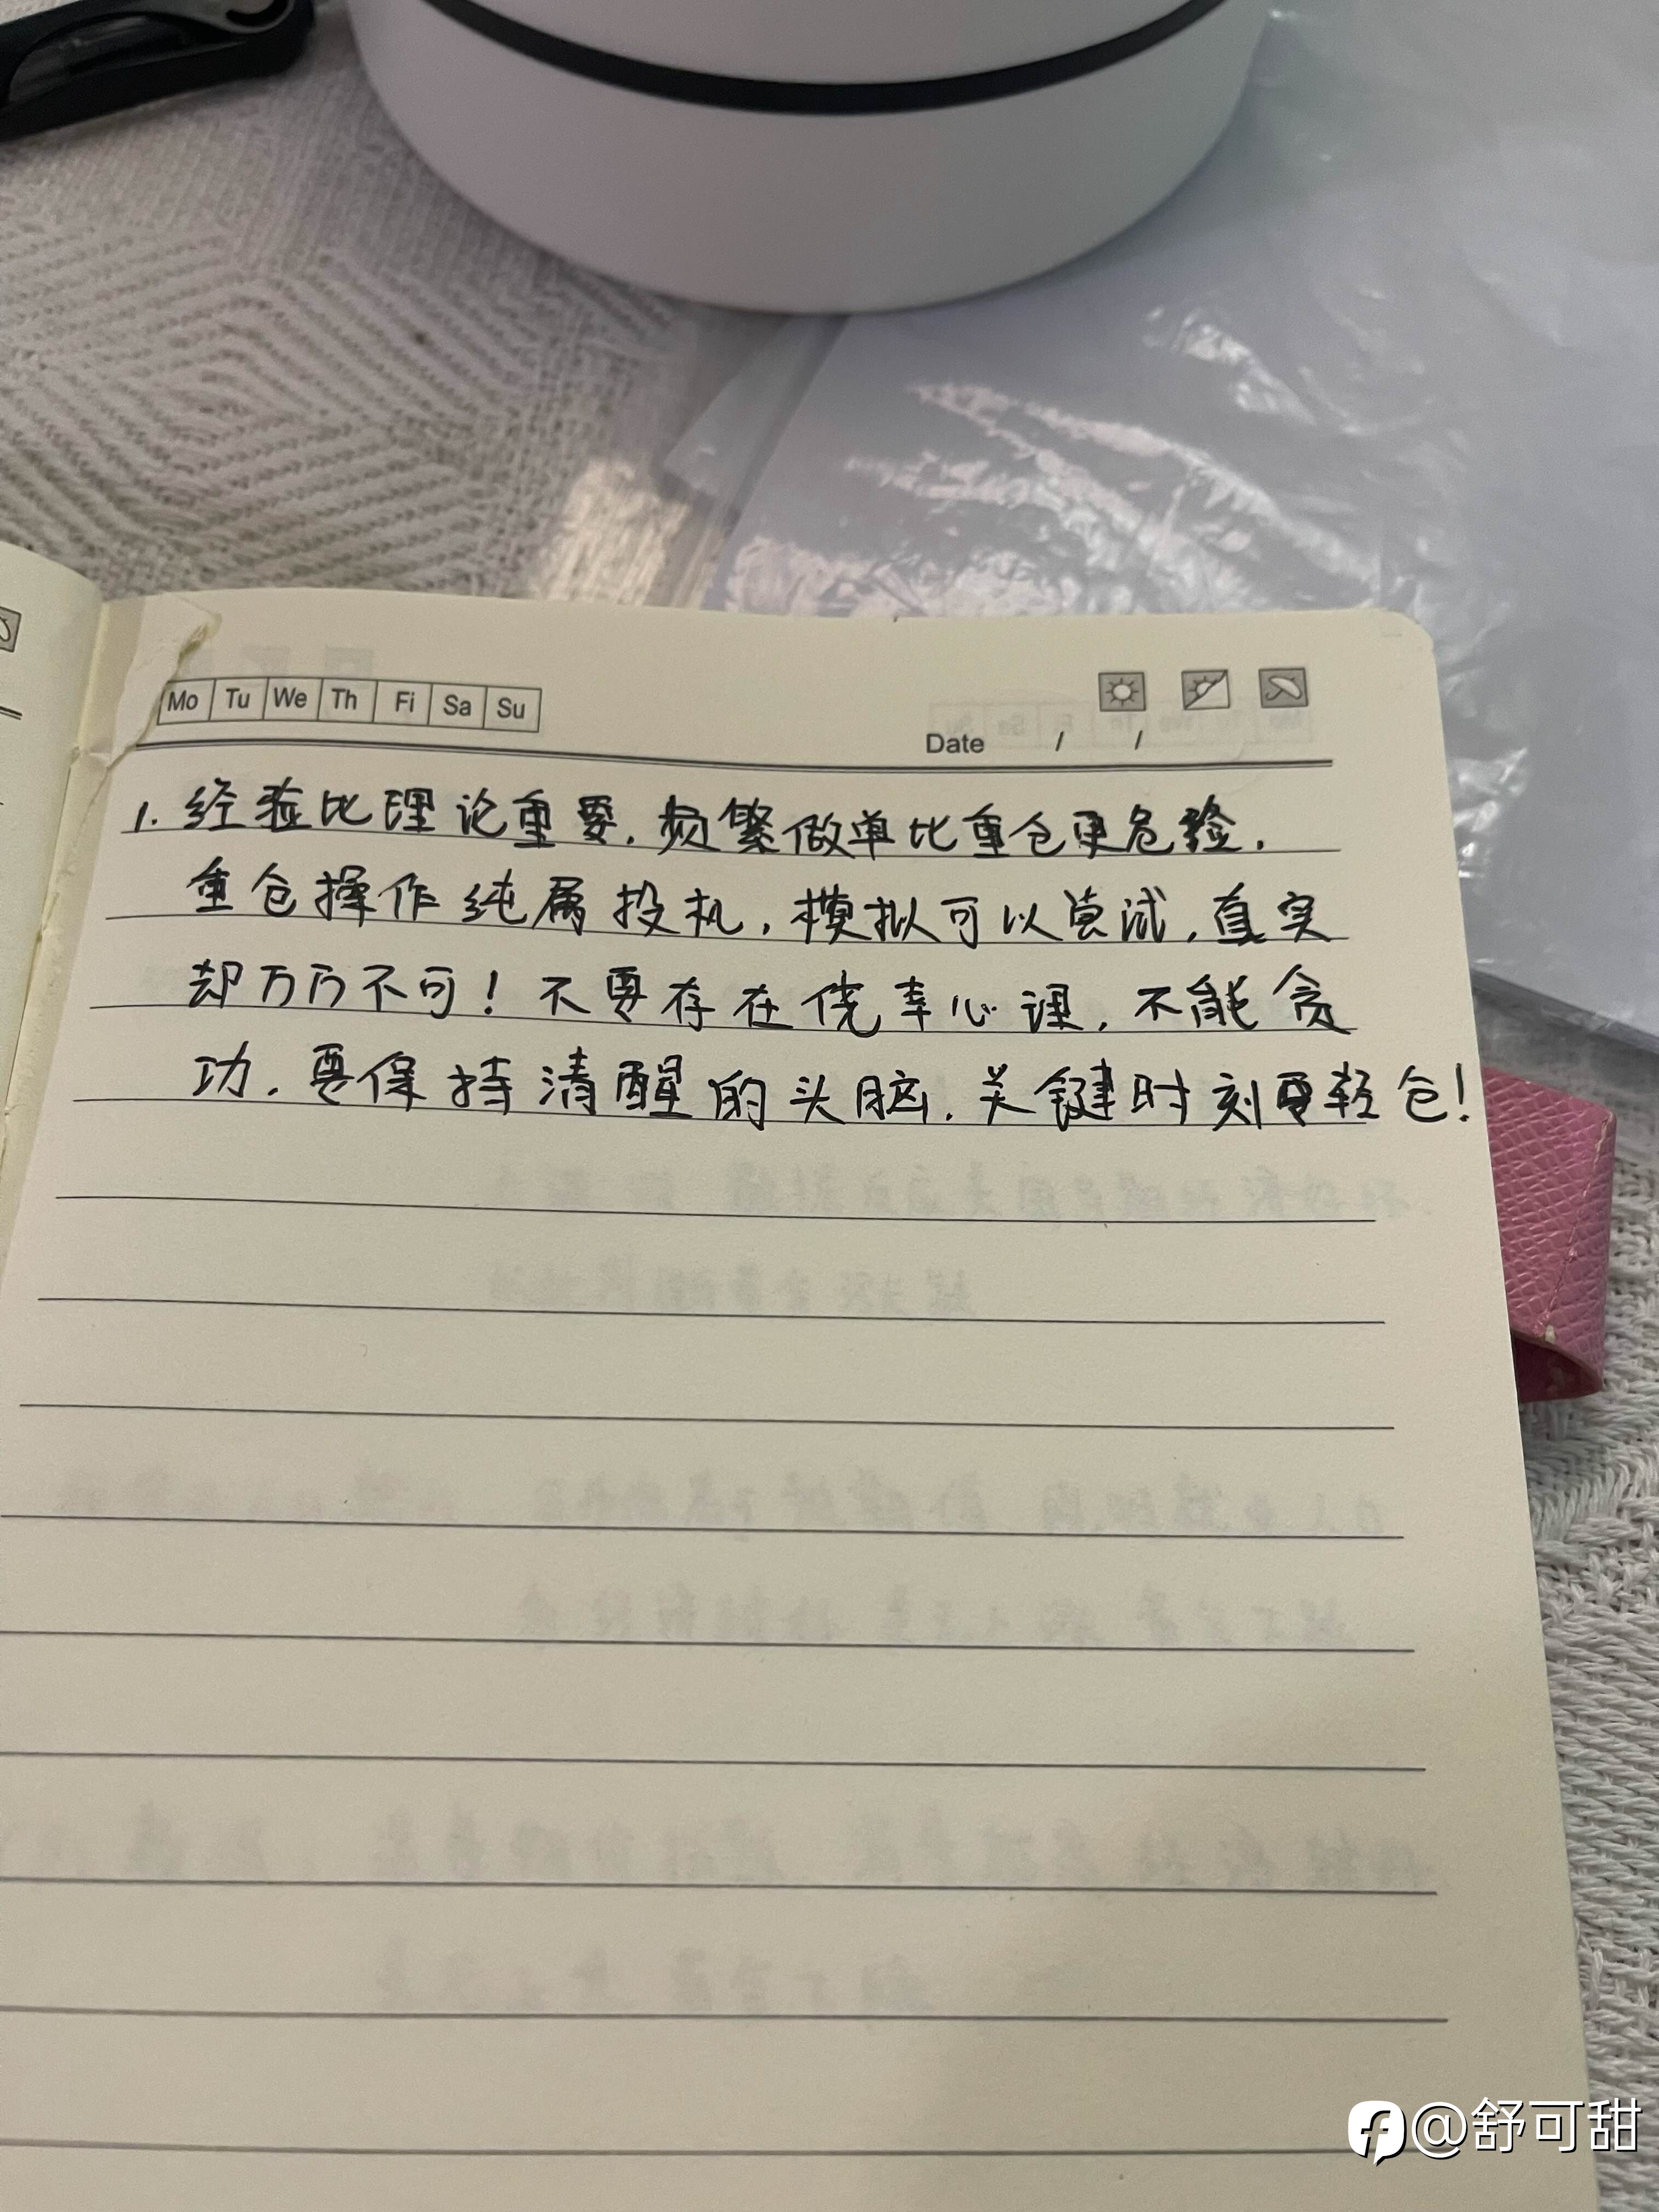 Mo Tu We Th Fi Sa Su
Date / /
1. 经验比理论重要.频繁做单比重仓更危险.
重仓操作纯属投机,模拟可以尝试,真实
却万万不可!不要存在侥幸心理,不能贪
功.要保持清醒的头脑.关键时刻要轻仓!
@舒可甜